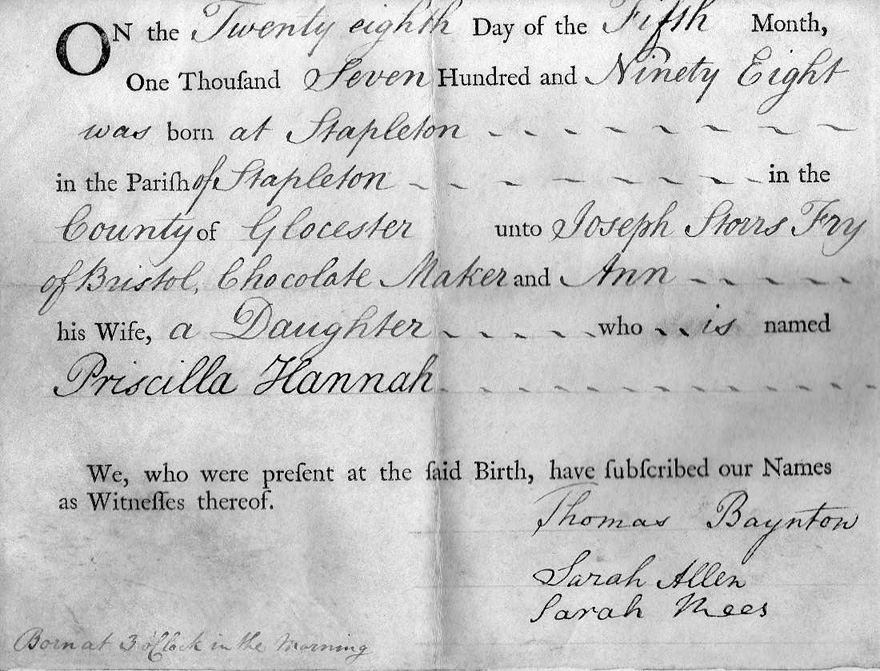 ON the Twenty eighth Day of the Fifth Month,
One Thouſand Seven Hundred and Ninety Eight
was born at Stapleton
in the Pariſh of Stapleton in the
County of Glocester unto Joseph Storrs Fry
of Bristol, Chocolate Maker and Ann
his Wife, a Daughter who is named
Priscilla Hannah
We, who were preſent at the ſaid Birth, have ſubſcribed our Names
as Witneſſes thereof.
Thomas Baynton
Sarah Allen
Sarah Mees
Born at 3 o'Clock in the Morning